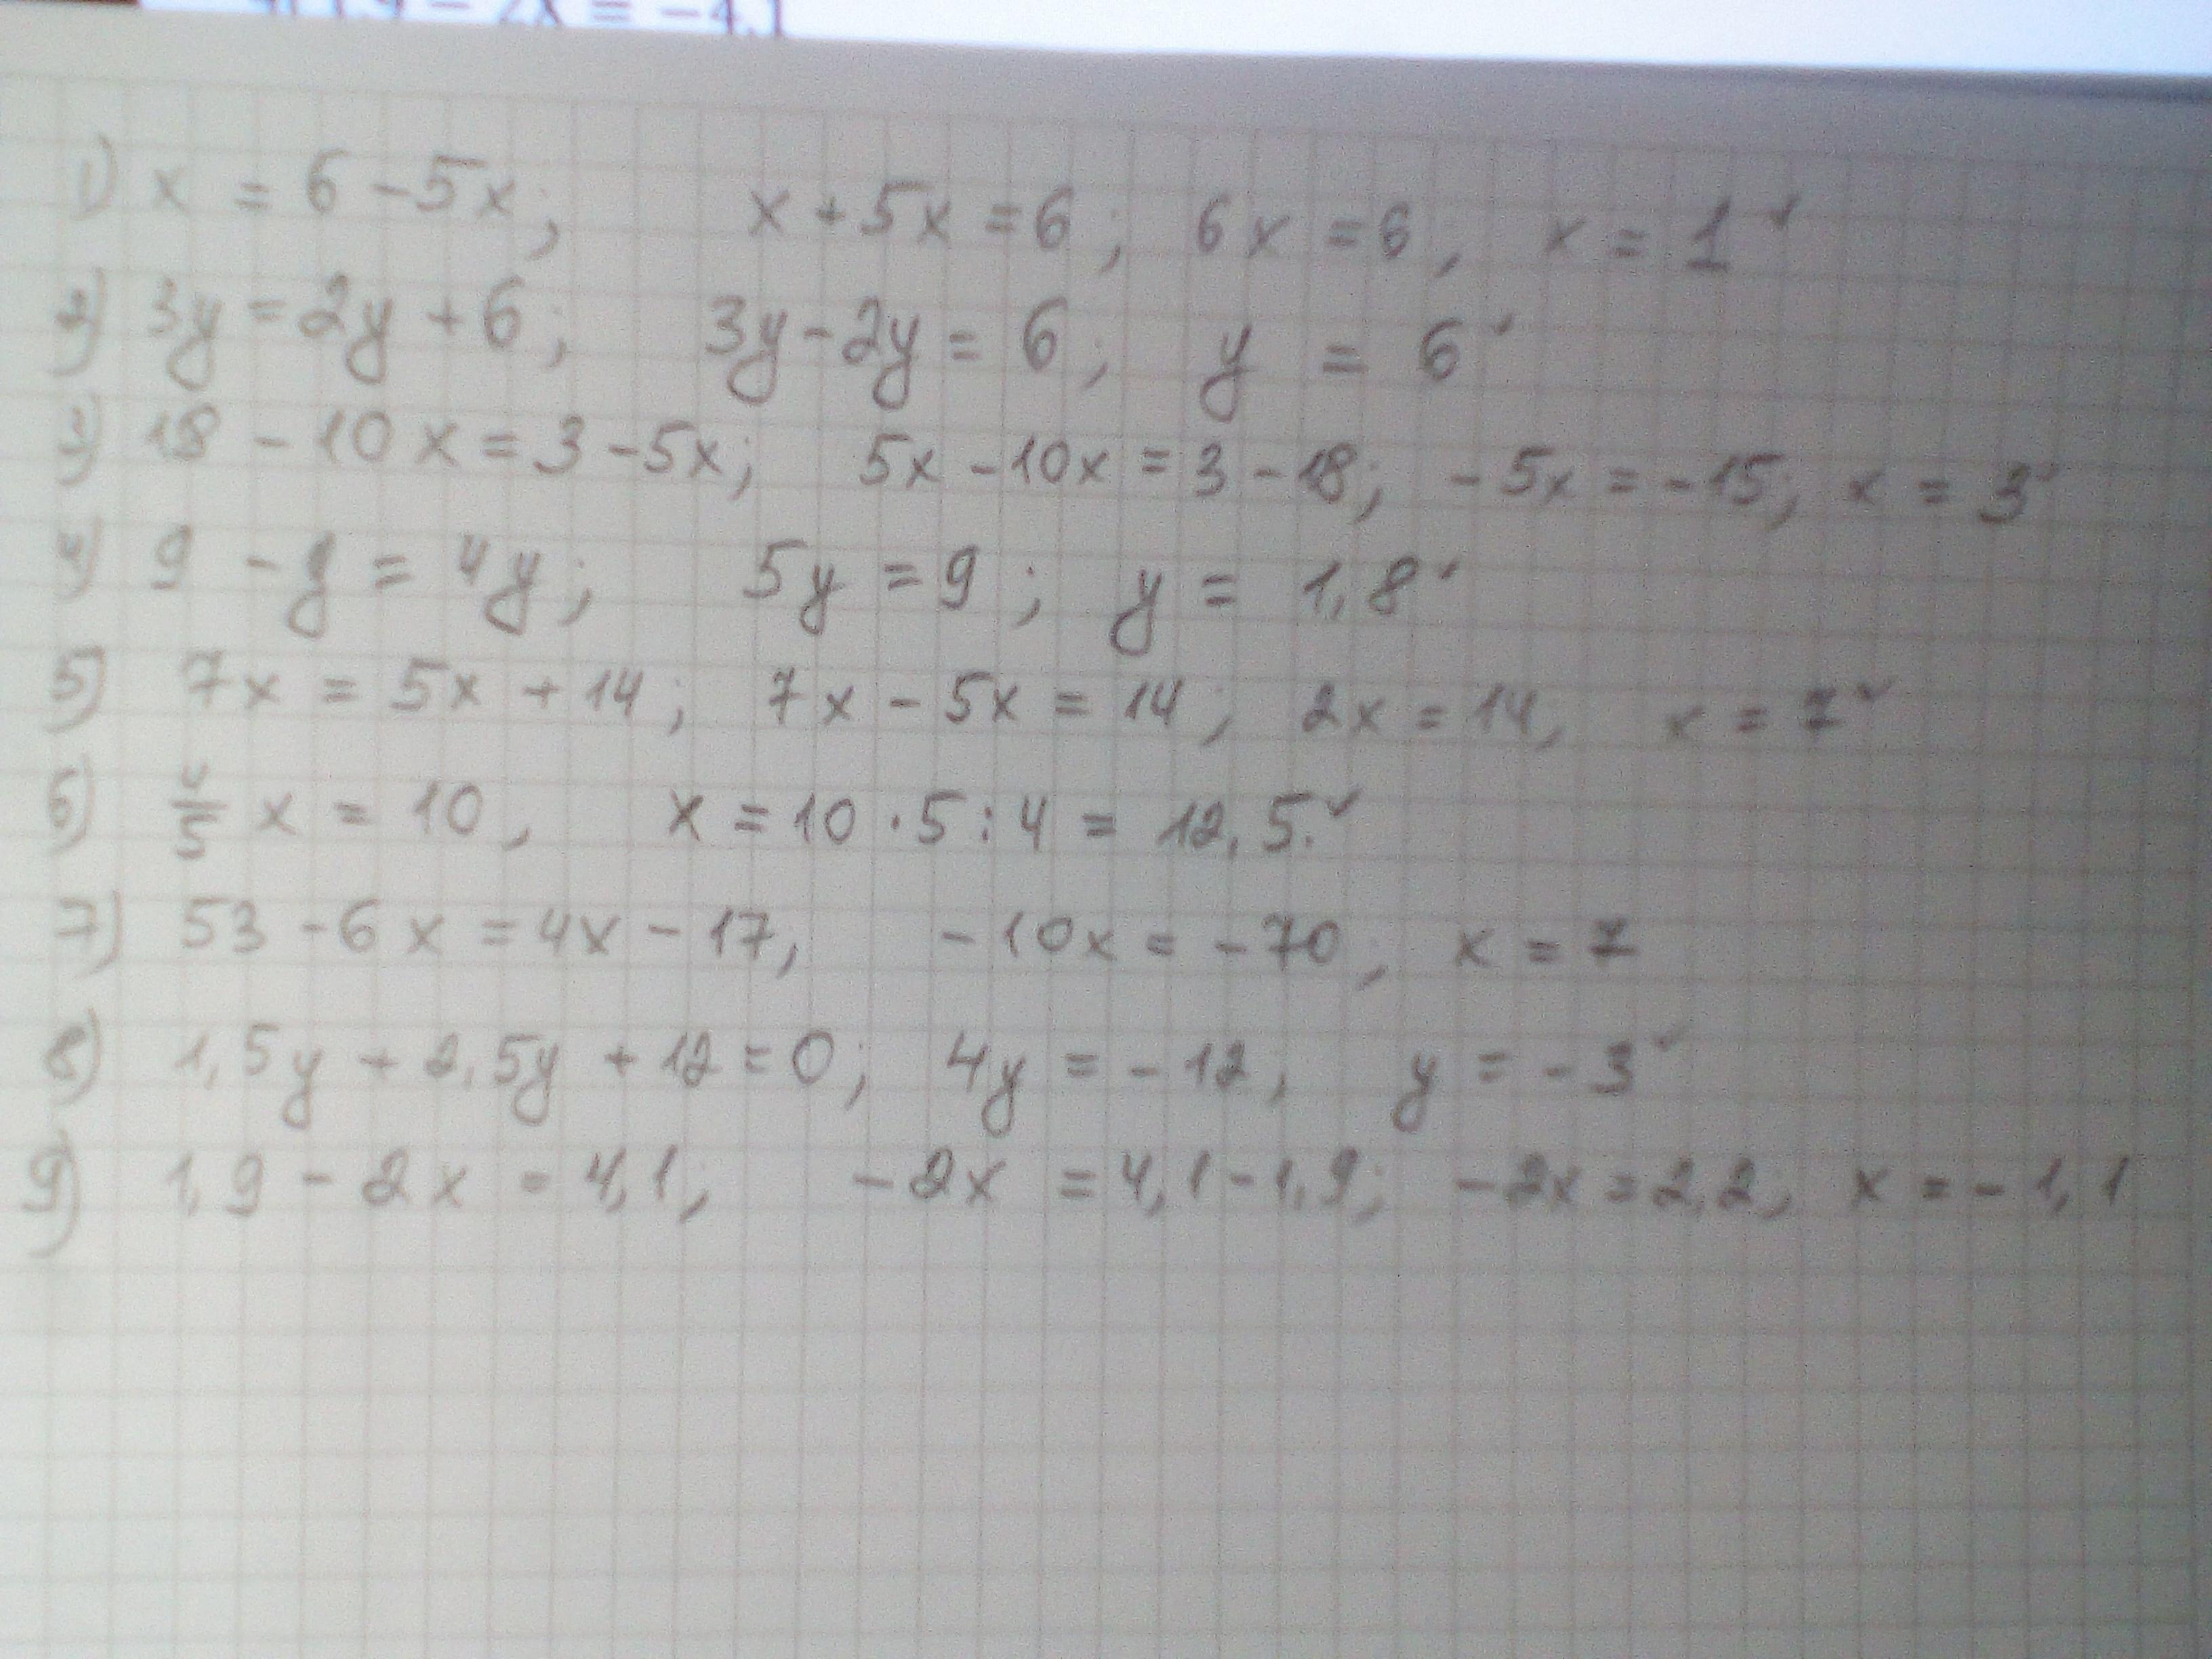 1,9 − 2x = −4,1
1) x = 6 - 5x; x + 5x = 6; 6x = 6, x = 1 ✓
2) 3y = 2y + 6; 3y - 2y = 6; y = 6 ✓
3) 18 - 10x = 3 - 5x; 5x - 10x = 3 - 18; - 5x = - 15; x = 3 ✓
4) 9 - y = 4y; 5y = 9; y = 1,8 ✓
5) 7x = 5x + 14; 7x - 5x = 14; 2x = 14, x = 7 ✓
6) 4/5 x = 10, x = 10 · 5 : 4 = 12,5. ✓
7) 53 - 6x = 4x - 17, - 10x = - 70, x = 7
8) 1,5y + 2,5y + 12 = 0; 4y = - 12, y = - 3 ✓
9) 1,9 - 2x = 4,1; - 2x = 4,1 - 1,9; - 2x = 2,2, x = - 1,1